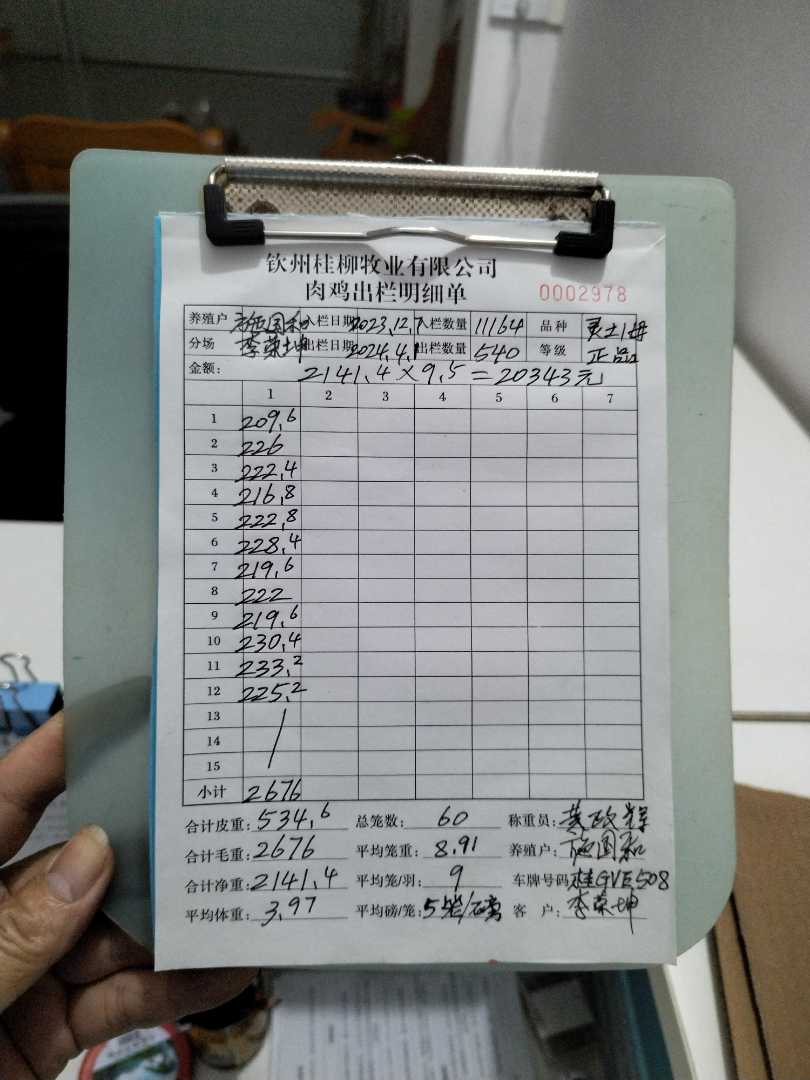 钦州桂柳牧业有限公司
肉鸡出栏明细单 0002978
养殖户 施国和 入栏日期 2023.12.7 入栏数量 11164 品种 灵土1母
分场 李荣坤 出栏日期 2024.4.1 出栏数量 540 等级 正品
金额: 2141.4×9.5=20343元
1 2 3 4 5 6 7
1 209.6
2 226
3 222.4
4 216.8
5 222.8
6 228.4
7 219.6
8 222
9 219.6
10 230.4
11 233.2
12 225.2
13
14
15
小计 2676
合计皮重: 534.6 总笼数: 60 称重员: 黄政辉
合计毛重: 2676 平均笼重: 8.91 养殖户: 施国和
合计净重: 2141.4 平均笼/羽: 9 车牌号码 桂GVE508
平均体重: 3.97 平均磅/笼: 5笼/磅 客 户: 李荣坤